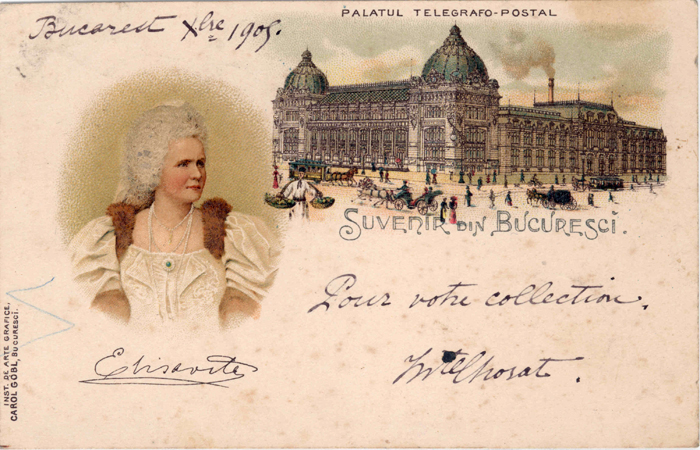 PALATUL TELEGRAFO-POSTAL
Bucarest Xbre 1905.
SUVENIR DIN BUCURESCI.
Pour votre collection.
Elisaveta
INST. DE ARTE GRAFICE,
CAROL GÖBL, BUCURESCI.